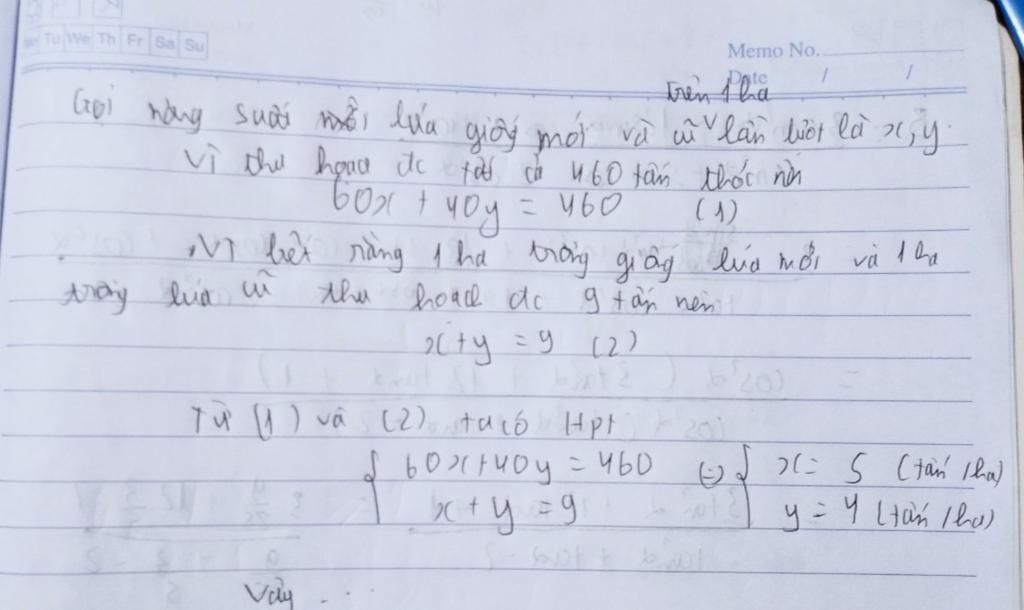 Tu We Th Fr Sa Su
Memo No.
Date / /
trên 1 ha
Gọi năng suất mỗi lúa giống mới và cũ lần lượt là x, y
Vì thu hoạch đc tất cả 460 tấn thóc nên
60x + 40y = 460 (1)
Vì biết rằng 1 ha trồng giống lúa mới và 1 ha
trồng lúa cũ thu hoạch đc 9 tấn nên
x + y = 9 (2)
Từ (1) và (2) ta có Hpt
{ 60x + 40y = 460 (=) { x = 5 (tấn / ha)
x + y = 9 y = 4 (tấn / ha)
Vậy ...